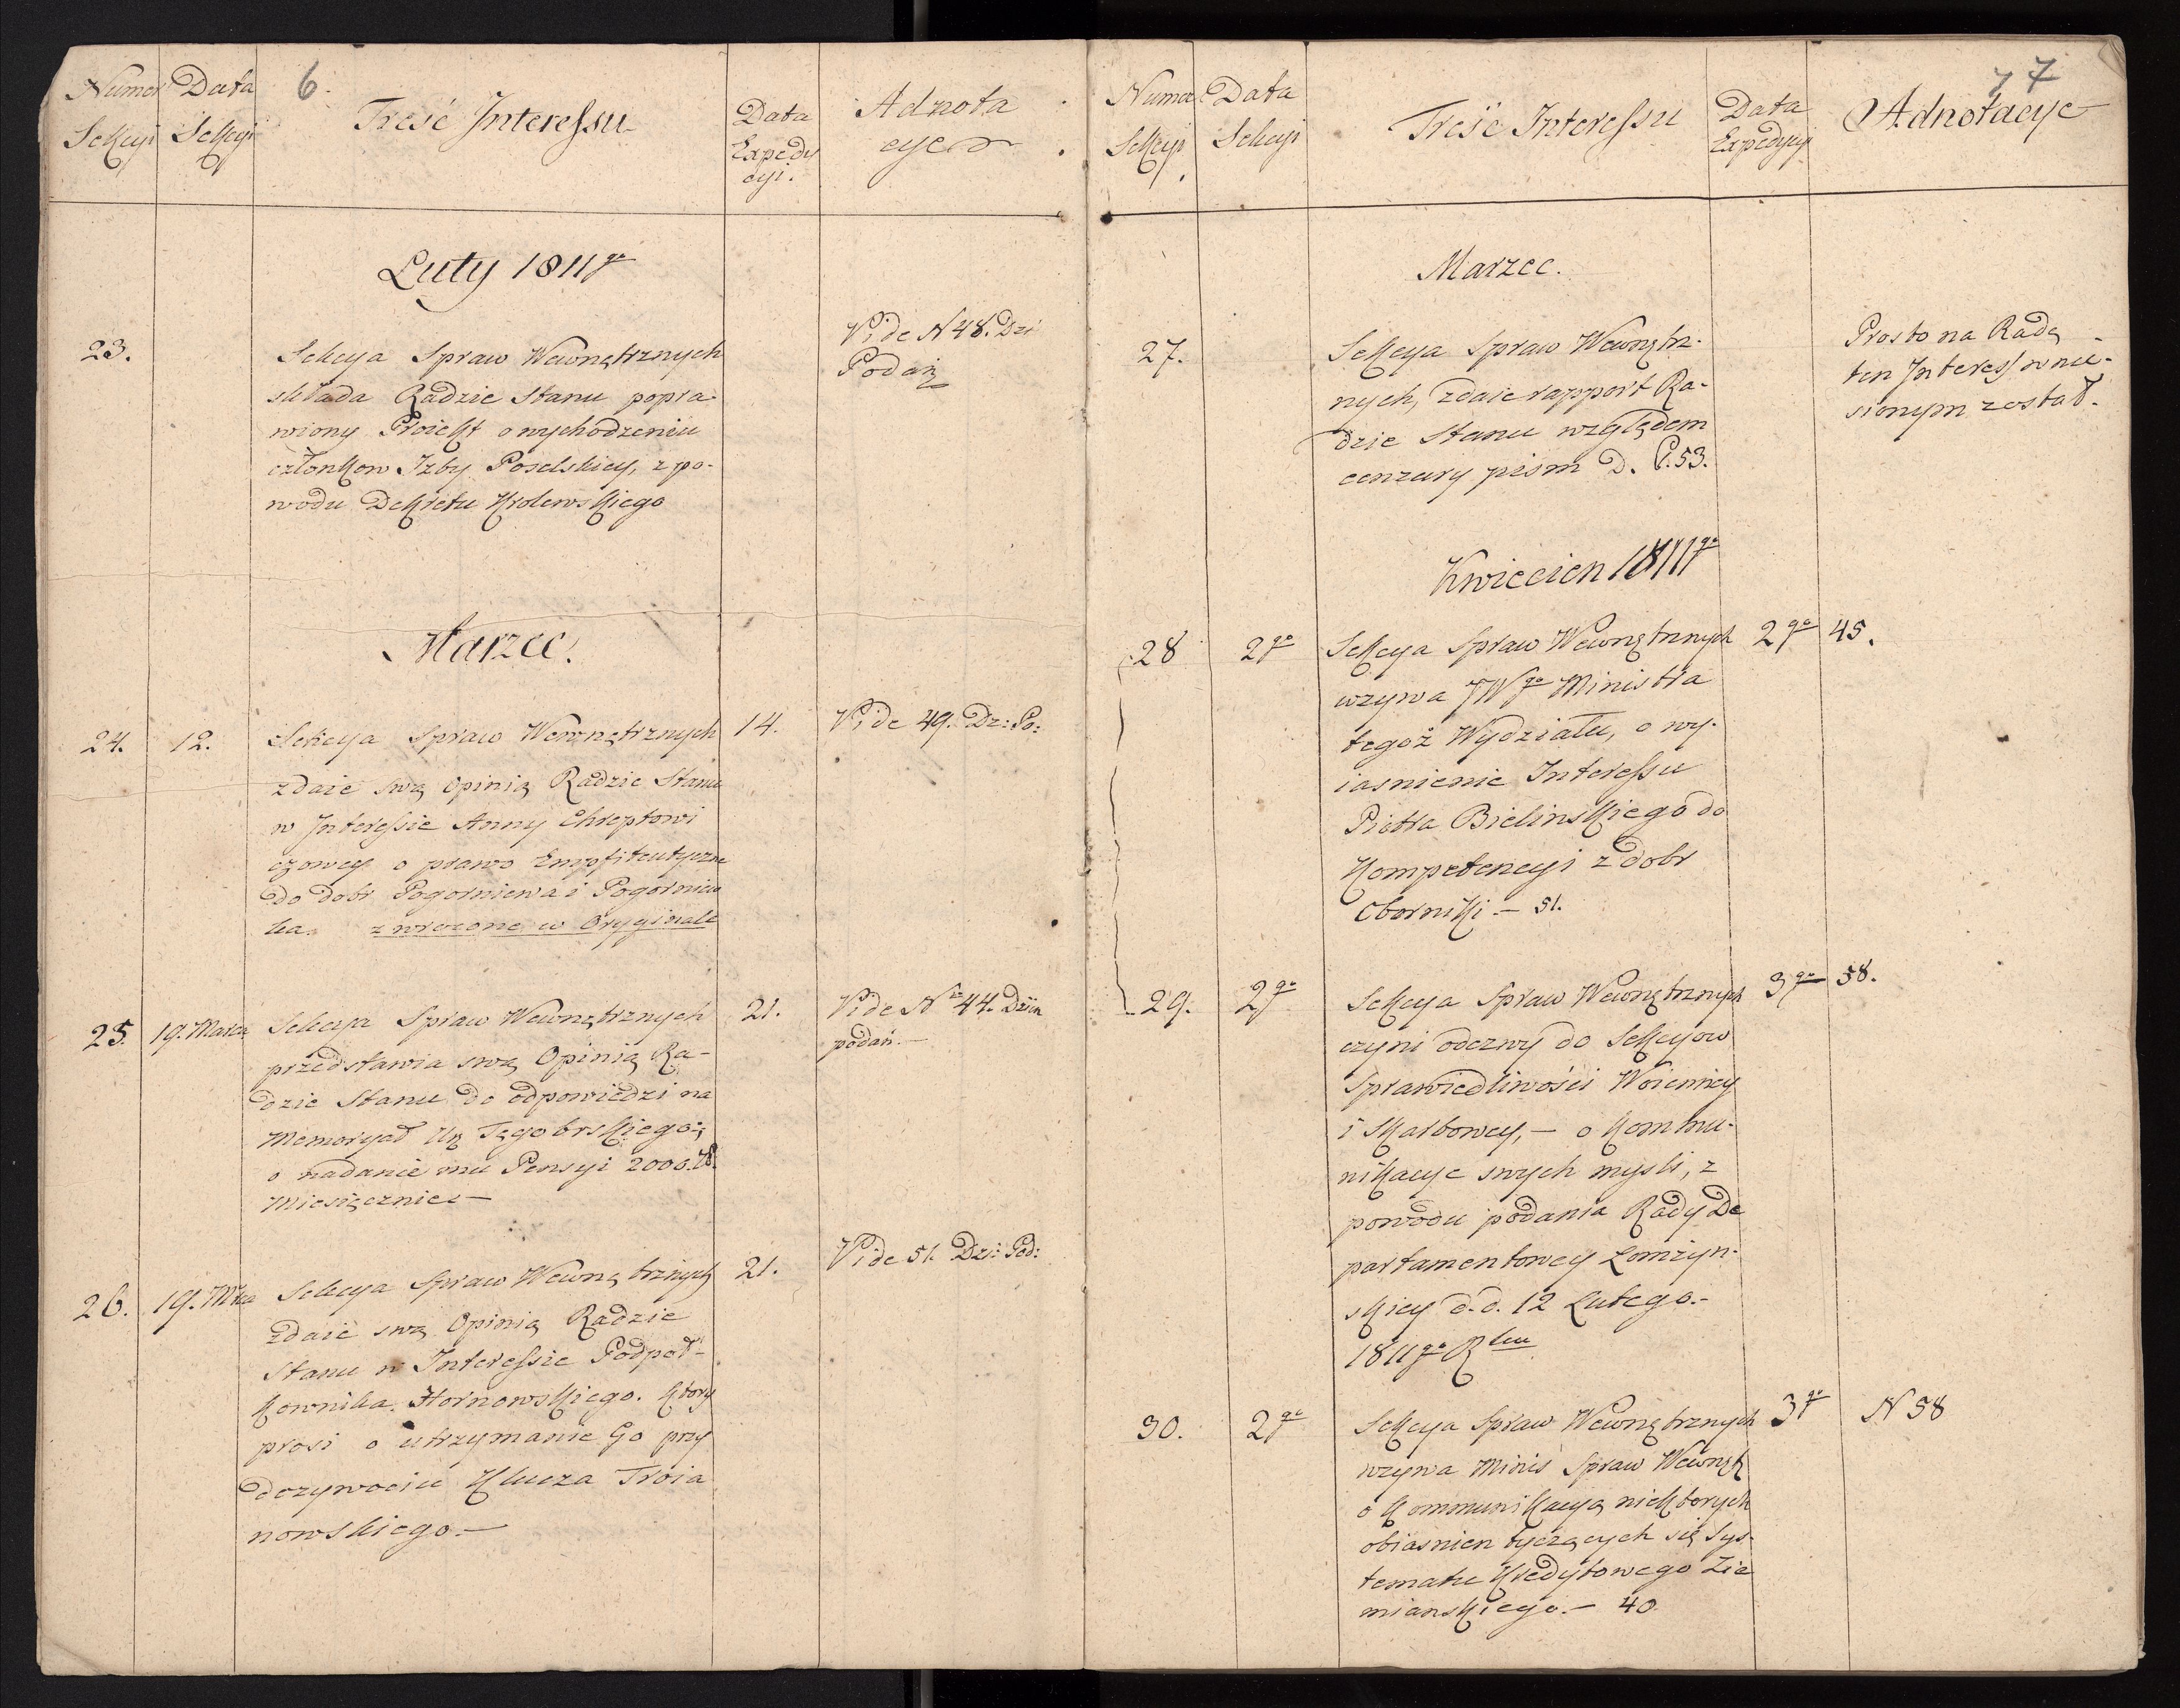 6.
Numer Data
Sekcyi Sekcyi
Treść Interessu
Data
Expedy
cyi.
Adnota
cye
Luty 1811go
23.
Sekcya Spraw Wewnętrznych
składa Radzie Stanu popra-
wiony Proiekt o wychodzeniu
członkow Izby Poselskiey, z po-
wodu Dekretu Krolewskiego
Vide N 48. Dzi
Podań
Marzec.
24.
12.
Sekcya Spraw Wewnętrznych
zdaie swą opinią Radzie Stanu
w Interessie Anny Chreptowi
czowey o prawo Empfiteutyczne
do dobr Pogorniewa i Pogorniew
ka. zwrocone w Oryginale
14.
Vide 49. Dz: Po:
25.
19. Marca
Sekcya Spraw Wewnętrznych
przedstawia swą Opinią Ra-
dzie Stanu do odpowiedzi na
Memoryał Tęgobrskiego;
o nadanie mu Pensyi 2000.
Miesięcznie
21.
Vide No 44. Dzien
podań.
26.
19. Mrca
Sekcya Spraw Wewnętrznych
zdaie swą Opinią Radzie
Stanu w Interessie Podpoł-
kownika Hornowskiego. ktory
prosi o utrzymanie Go przy
dozywociu Klucza Troia
nowskiego.
21.
Vide 51. Dzi: Pod:
7 7
Numer Data
Sekcyi Sekcyi
Treść Interessu
Data
Expedycyi
Adnotacye
Marzec.
27.
Sekcya Spraw Wewnętrz-
nych, zdaie rapport Ra-
dzie Stanu względem
cenzury pism D. P. 53.
Prosto na Radę
ten Interess wnie-
sionym został.
Kwiecien 1811go
28
2go
Sekcya Spraw Wewnętrznych
wzywa JWgo Ministra
tegoż Wydziału, o wy-
iasnienie Interessu
Piotra Bielinskiego do
Kompetencyi z dobr
Oborniki — 51.
2go
45.
29.
2go
Sekcya Spraw Wewnętrznych
czyni odezwy do Sekcyow
Sprawiedliwości Woienney
i Skarbowey, — o Kommu-
nikacye swych mysli, z
powodu podania Rady De
partamentowey Łomżyn-
skiey d. d. 12 Lutego.
1811go Rku
3go
58.
30.
2go
Sekcya Spraw Wewnętrznych
wzywa Minis Spraw Wewnęt
o Kommunikacyą niektorych
obiasnien tyczących się Sys-
tematu Kredytowego Zie
mianskiego. — 40.
3go
N 58